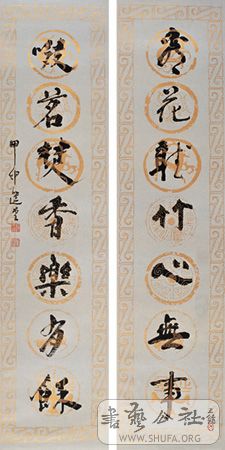 看花聽竹心無事
啜茗焚香樂有餘
甲申選堂
書藝公社
WWW.SHUFA.ORG